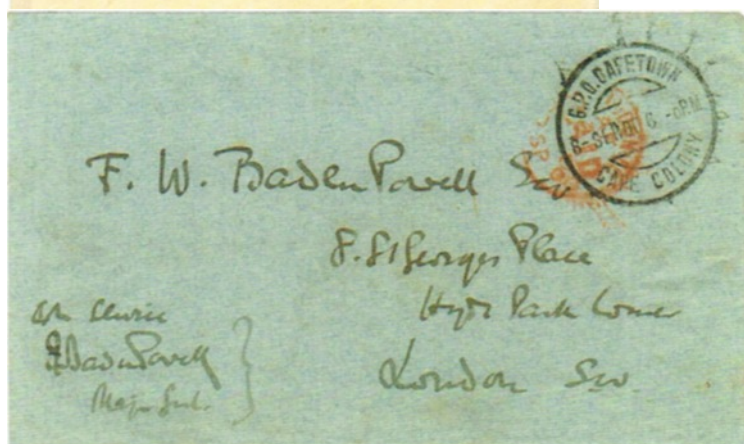 G.P.O. CAPETOWN
CAPE COLONY
F. W. Baden Powell
8. St Georges Place
Hyde Park Corner
London SW.
On Service
Baden Powell
Major Genl.